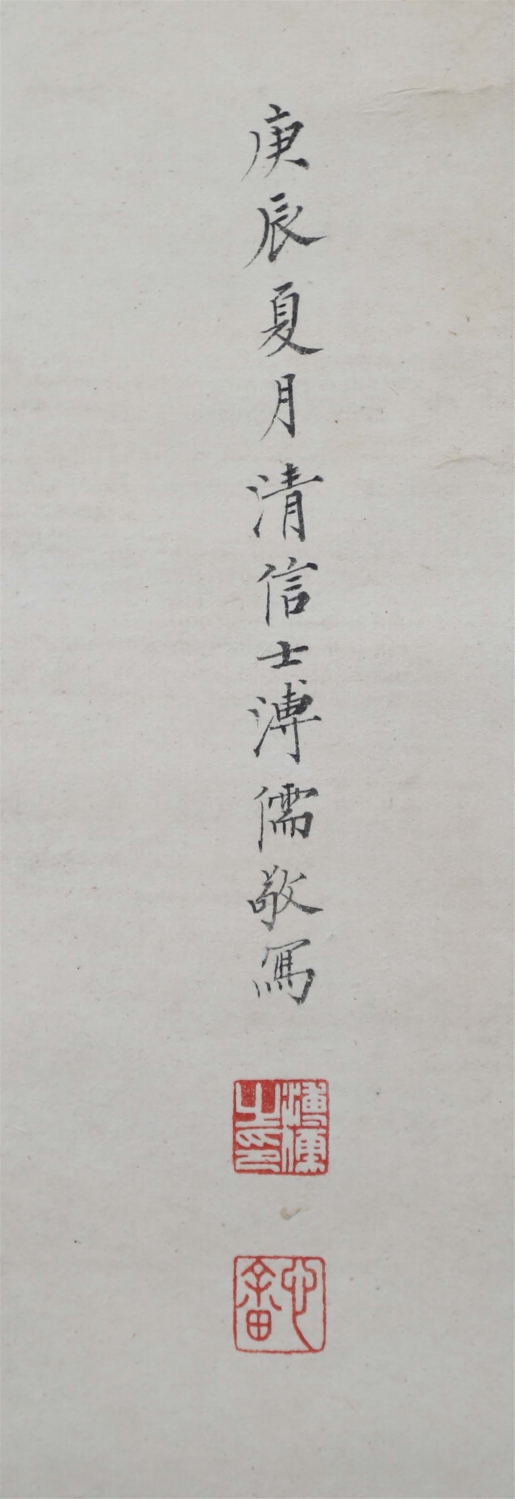 庚辰夏月清信士溥儒敬寫
溥儒之印
心畬